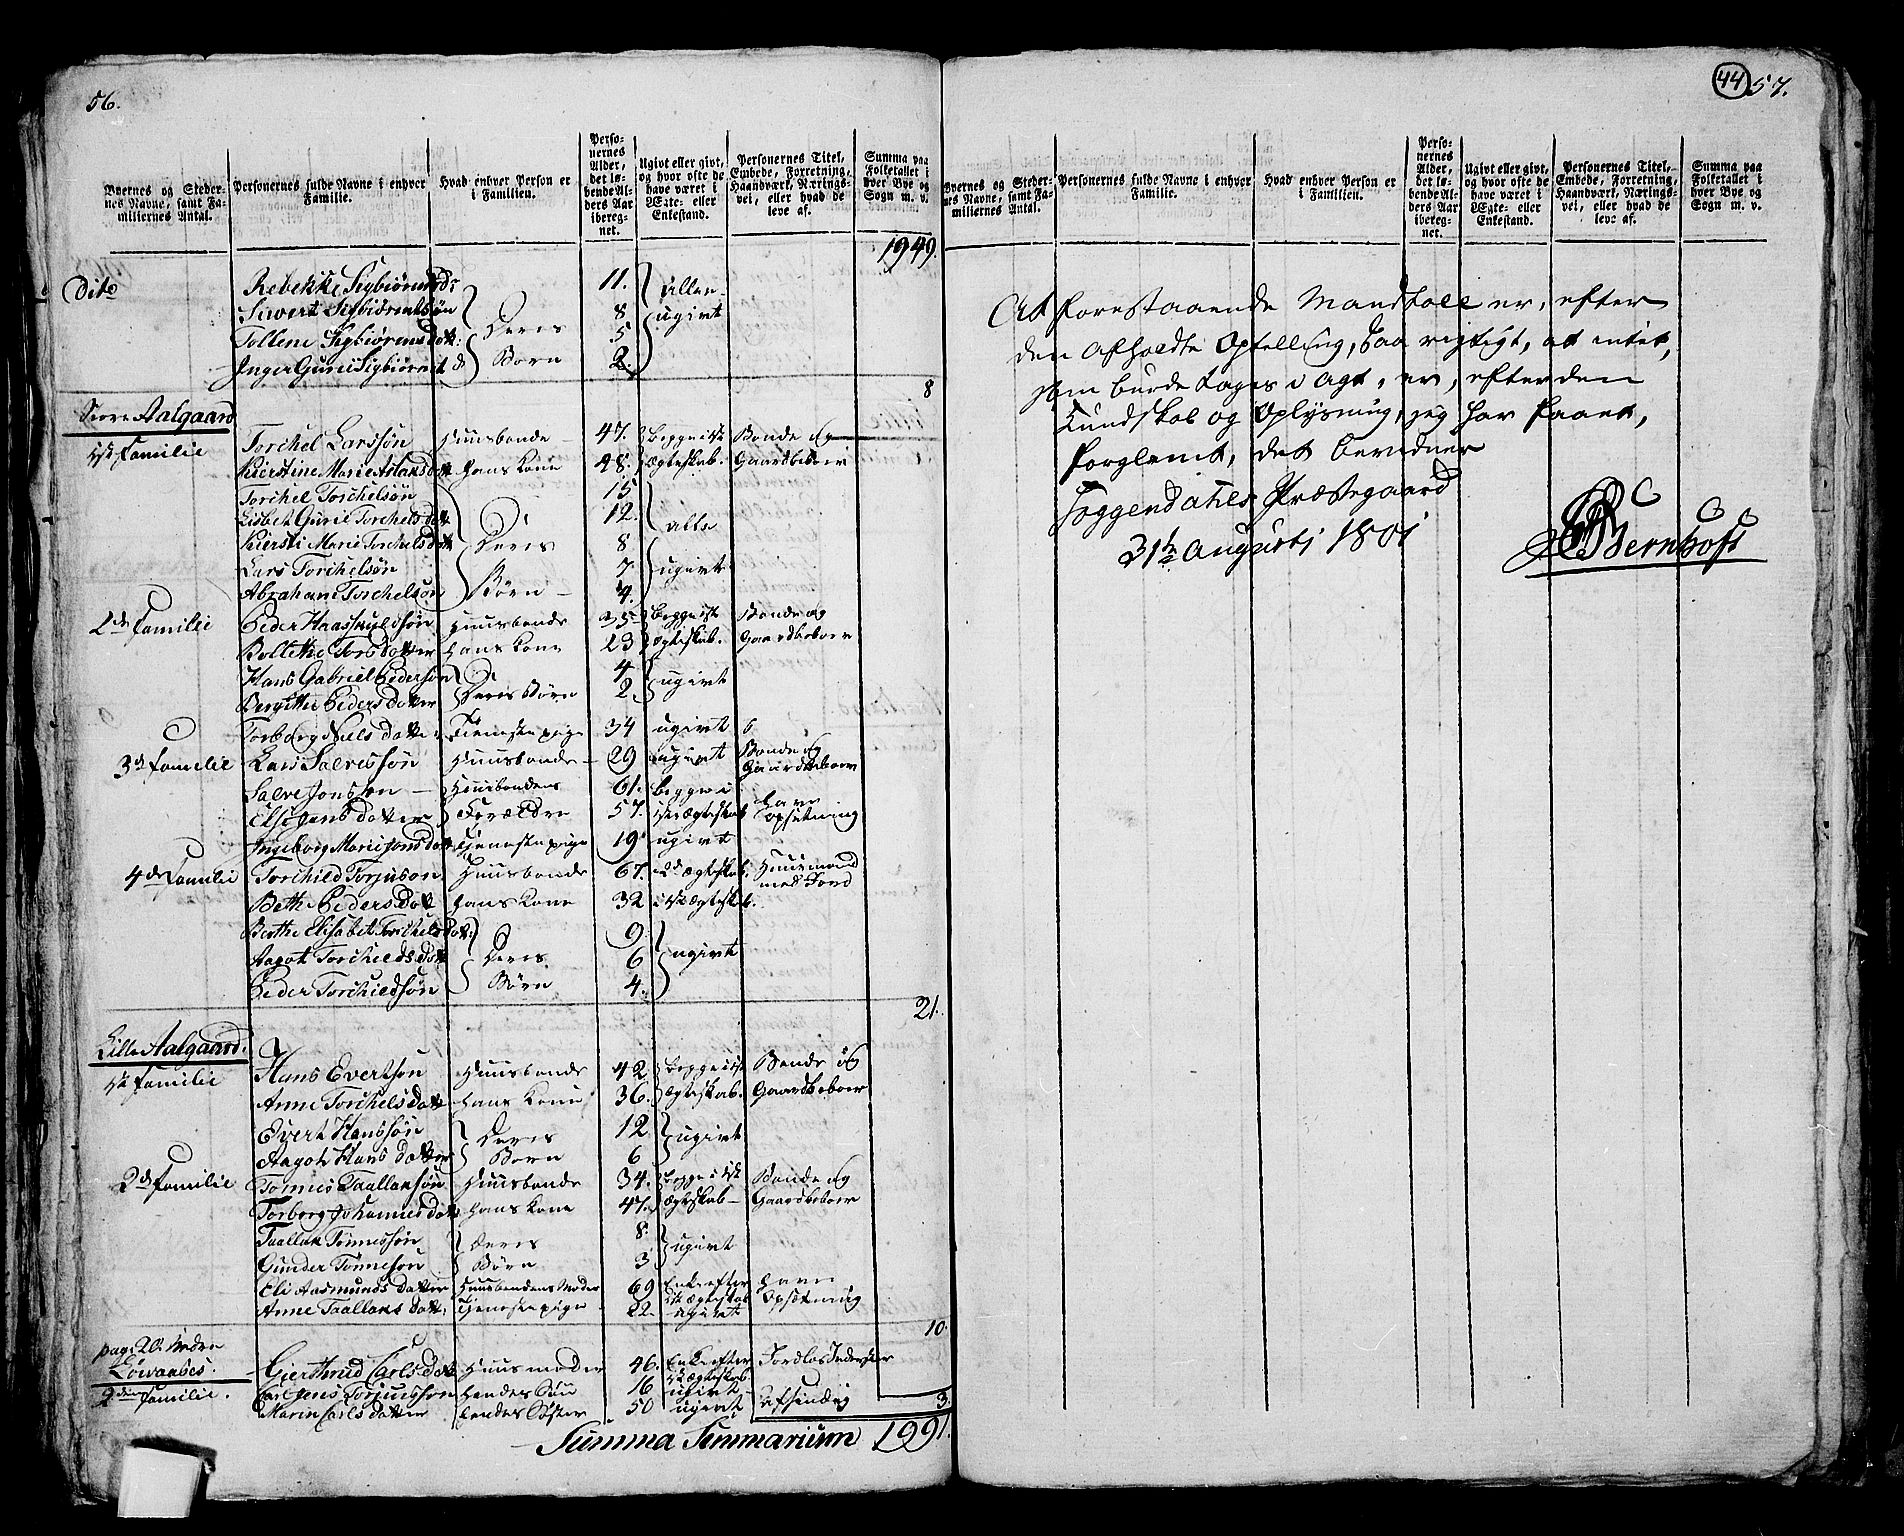 56.
Byernes og Stedernes Navne, samt Familiernes Antal.
Personernes fulde Navne i enhver Familie.
Hvad enhver Person er i Familien.
Personernes Alder, det løbende Alders Aar iberegnet.
Ugivt eller givt, og hvor ofte de have været i Ægte- eller Enkestand.
Personernes Titel, Embede, Forretning, Haandværk, Næringsvei, eller hvad de leve af.
Summa paa Folketallet i hver Bye og Sogn m. v.
1949.
Dito Rebekke Sigbiørnsdr 11. alle
Siwert Sigbiørnsøn 8 ugivt
Tollene Sigbiørnsdatt: Deres 5
Inger Gurie Sigbiørnsd Børn 2.
8
Store Aalgaard
1ste Familie Torchel Larssøn Huusbonde 47. begge i 1ste Bonde og
Kierstine Marie Adansdatt hans Kone 48. Ægteskab. Gaardbeboer
Torchel Torchelsøn 15
Lisbet Gurie Torchelsdatt 12. alle
Kiersti Marie Torchelsdatt Deres 8
Lars Torchelsøn 7 ugivt
Abraham Torchelsøn Børn 4.
2den Familie Peder Haaskuldsøn Huusbonde 35 begge i 1ste Bonde og
Bollette Torsdatter hans Kone 23 Ægteskab. Gaardbeboer
Hans Gabriel Pedersøn 4 ugivt
Bergitte Pedersdatter Deres Børn 2
Torborg Nielsdatter Tienestepige 34 ugivt
3de Familie Lars Salvessøn Huusbonde 29 ugivt Bonde og Gaardbeboer
Salve Jonssøn Huusbondens 61. begge i have
Else Jensdatter Forældre 57. 1ste Ægteskab Opsetning
Ingeborg Marie Jonsdatt Tienestepige 19 ugivt
4de Familie Torchild Torjuson Huusbonde 67. 2det Ægteskab Huusmand med Jord
Bethe Pedersdatt hans Kone 32 1ste Ægteskab.
Berthe Elisabet Torchelsdatt: 9
Aagot Torchieldsdatt Deres 6 ugivt
Peder Torchieldsøn Børn 4.
21.
Lille Aalgaard.
1ste Familie Hans Evertsøn Huusbonde 42 begge i 1ste Bonde og
Anne Torchelsdatt hans Kone 36. Ægteskab. Gaardbeboer
Evert Hanssøn Deres 12. ugivt
Aagot Hansdatter Børn 6
2den Familie Tønnes Taallaksøn Huusbonde 34. begge i 1ste Bonde og
Torborg Johannesdatt hans Kone 47. Ægteskab Gaardbeboer
Taallak Tønnessøn Deres 8. ugivt
Gunder Tønnesøn Børn 3
Eli Aasmundsdatter Huusbondens Moder 69 Enke efter 1ste Ægteskab have Opsetning
Anne Taallaksdatt: Tienestepige 22. ugivt
10.
pag: 20. Nedre
Løwaaes.
2den Familie. Gierthrud Carlsdatt Huusmoder 46. Enke efter 1ste Ægteskab Jordløs Inderster
Carl Jens Torjussøn hendes Søn 16 ugivt
Maren Carlsdatter hendes Søster 50 ugivt
3.
Summa Summarium 1991.
44 57.
Byernes og Stedernes Navne, samt Familiernes Antal.
Personernes fulde Navne i enhver Familie.
Hvad enhver Person er i Familien.
Personernes Alder, det løbende Alders Aar iberegnet.
Ugivt eller givt, og hvor ofte de have været i Ægte- eller Enkestand.
Personernes Titel, Embede, Forretning, Haandværk, Næringsvei, eller hvad de leve af.
Summa paa Folketallet i hver Bye og Sogn m. v.
At forestaaende Mandtall er, efter
den afholdte Optelling, saa rigtigt, at intet,
som burde tages i Agt, er, efter den
Kundskab og Oplysning, jeg har faaet,
forglemt, det bevidner
Foggendahls Præstegaard
31te Augusti 1801
Bernhoft